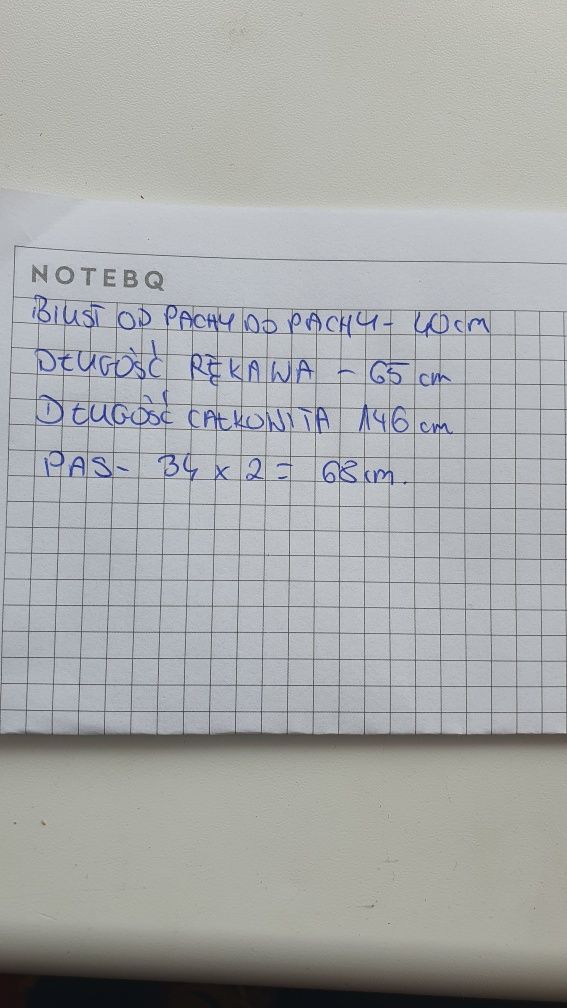 NOTEBQ
BIUST OD PACHY DO PACHY - 40cm
DŁUGOŚĆ RĘKAWA - 65 cm
DŁUGOŚĆ CAŁKOWITA 146 cm
PAS - 34 x 2 = 68cm.